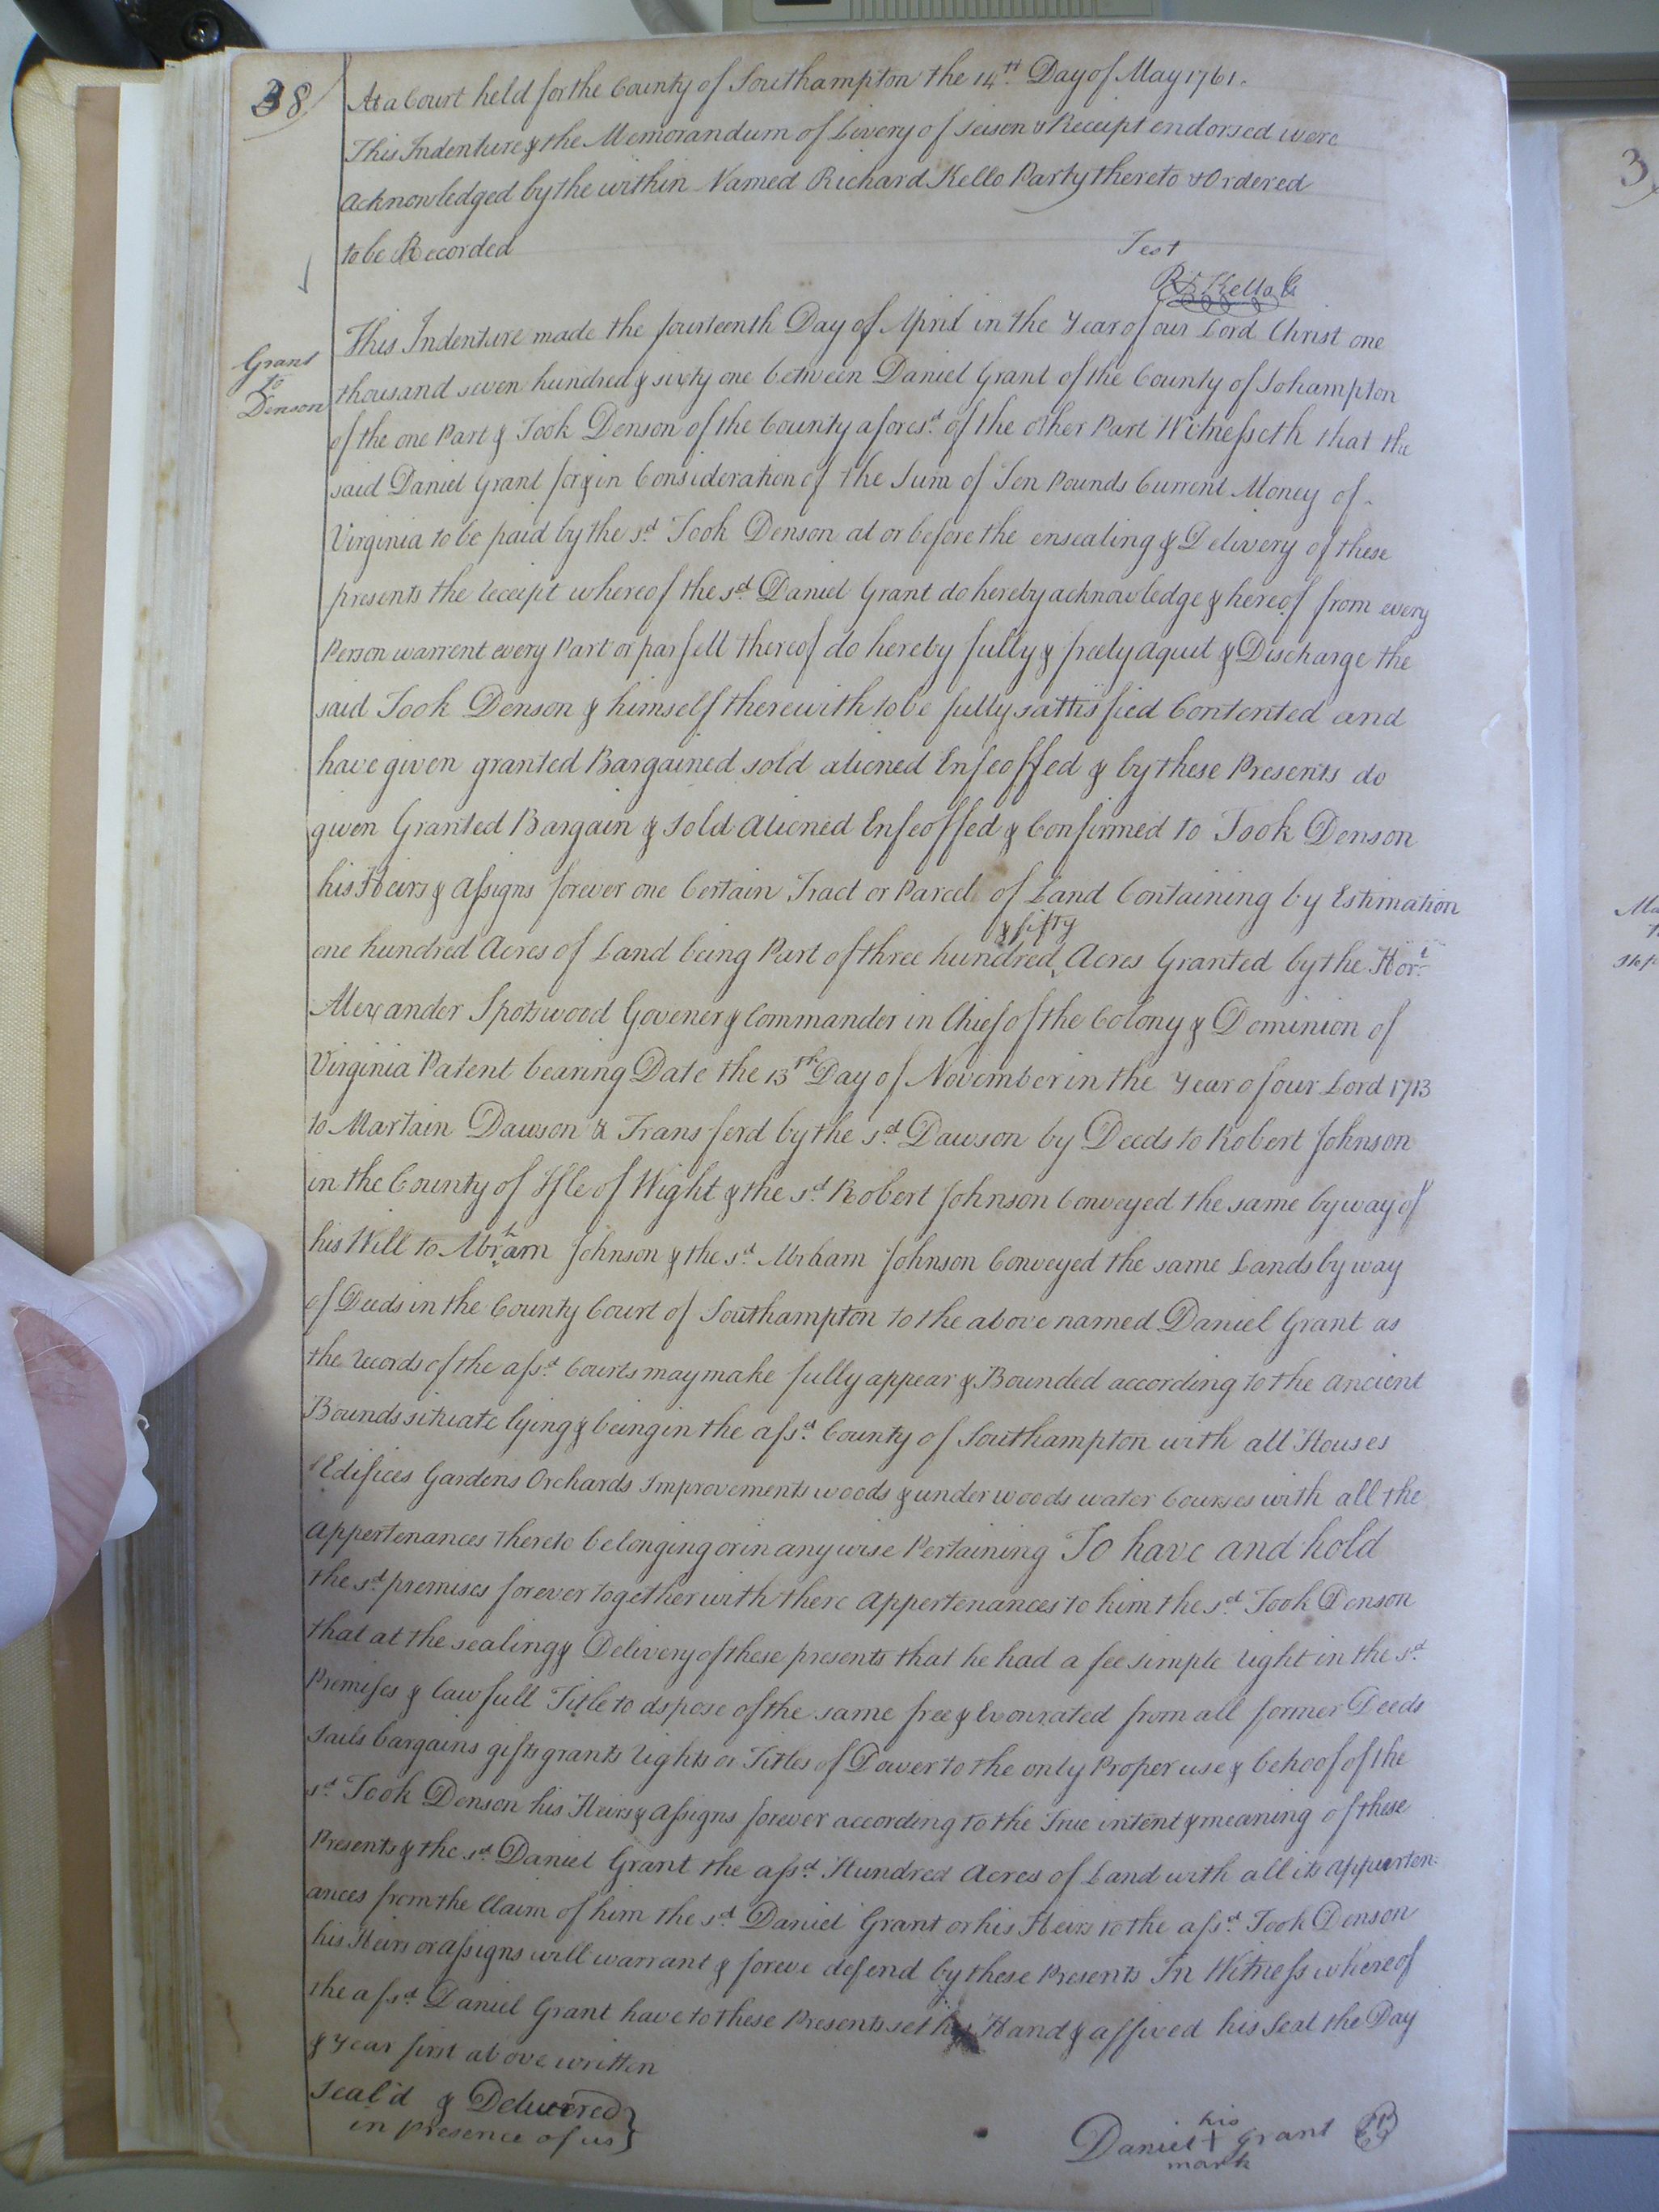 38
At a Court held for the County of Southampton the 14th Day of May 1761.
This Indenture & the Memorandum of Livery of Seisen & Receipt endorsed were
acknowledged by the within Named Richard Kello Party thereto & Ordered
to be Recorded
Test
Rd Kello C
Grant
to
Denson
This Indenture made the fourteenth Day of April in the Year of our Lord Christ one
thousand seven hundred & sixty one between Daniel Grant of the County of Sohampton
of the one Part & Took Denson of the County aforesd. of the other Part Witnesseth that the
said Daniel Grant for & in Consideration of the Sum of Ten Pounds Current Money of
Virginia to be paid by the sd Took Denson at or before the ensealing & Delivery of these
presents the receipt whereof the sd. Daniel Grant do hereby acknowledge & hereof from every
Person warrent every Part or parsell thereof do hereby fully & freely aquit & Discharge the
said Took Denson & himself therewith to be fully sattisfied Contented and
have given granted Bargained sold aliened Enfeoffed & by these Presents do
given Granted Bargain & Sold Aliened Enfeoffed & Confirmed to Took Denson
his Heirs & Assigns forever one Certain Tract or Parcel of Land Containing by Estimation
& fifty
one hundred Acres of Land being Part of three hundred Acres Granted by the Hor.
Alexander Spotswood Govener & Commander in Chief of the Colony & Dominion of
Virginia Patent bearing Date the 13th Day of November in the Year of our Lord 1713
to Martain Dawson & Transferd by the sd. Dawson by Deeds to Robert Johnson
in the County of Isle of Wight & the sd. Robert Johnson Conveyed the same by way of
his Will to Abraham Johnson & the sd. Abraham Johnson Conveyed the same Lands by way
of Deeds in the County Court of Southampton to the above named Daniel Grant as
the records of the afsd. Courts may make fully appear & Bounded according to the ancient
Bounds situate lying & being in the afsd. County of Southampton with all Houses
Edifices Gardens Orchards Improvements woods & under woods water Courses with all the
appertenances thereto belonging or in any wise Pertaining To have and hold
the sd. premises forever together with there appertenances to him the sd. Took Denson
that at the sealing & Delivery of these presents that he had a fee simple right in the sd.
Premises & lawfull Title to dspose of the same free & Exonrated from all former Deeds
Sails bargains gifts grants rights or Titles of Dower to the only Proper use & behoof of the
sd. Took Denson his Heirs & Assigns forever according to the True intent & meaning of these
Presents & the sd. Daniel Grant the afsd. Hundred Acres of Land with all its appurten.
ances from the Claim of him the sd. Daniel Grant or his Heirs to the afsd. Took Denson
his Heirs or assigns will warrant & foreve defend by these Presents In Witness whereof
the afsd. Daniel Grant have to these Presents set his Hand & affixed his Seal the Day
& Year first above written
Seal'd & Delivered }
in presence of us }
his
Daniel + Grant
mark